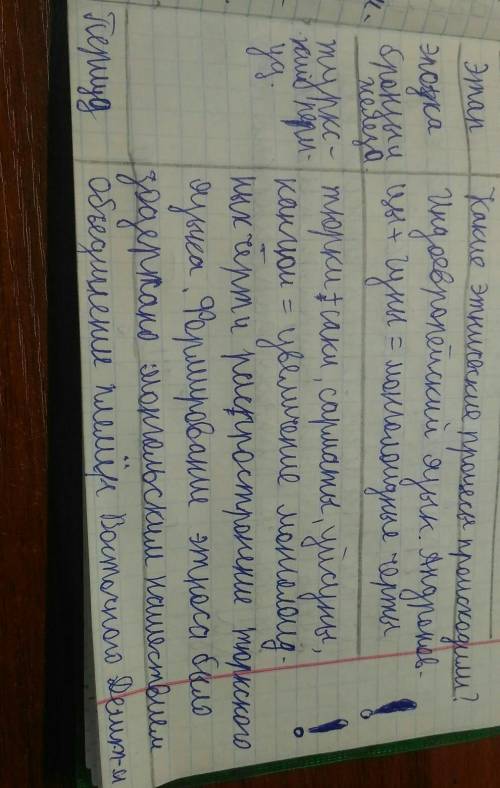 этап Какие этнические процесы происходили?
эпоха Индоевропейский язык. Андронов-
бронзы и цы + гуны = монголоидные черты !
железа
тюркс- тюрки + саки, сарматы, уйсуны,
кий пери- канглы = увеличение монголоид- !
ных черт и распространение тюркского
языка. Формирование этноса было
задержано монгольским нашествием
Период Объединение племён Восточного Дешт-и